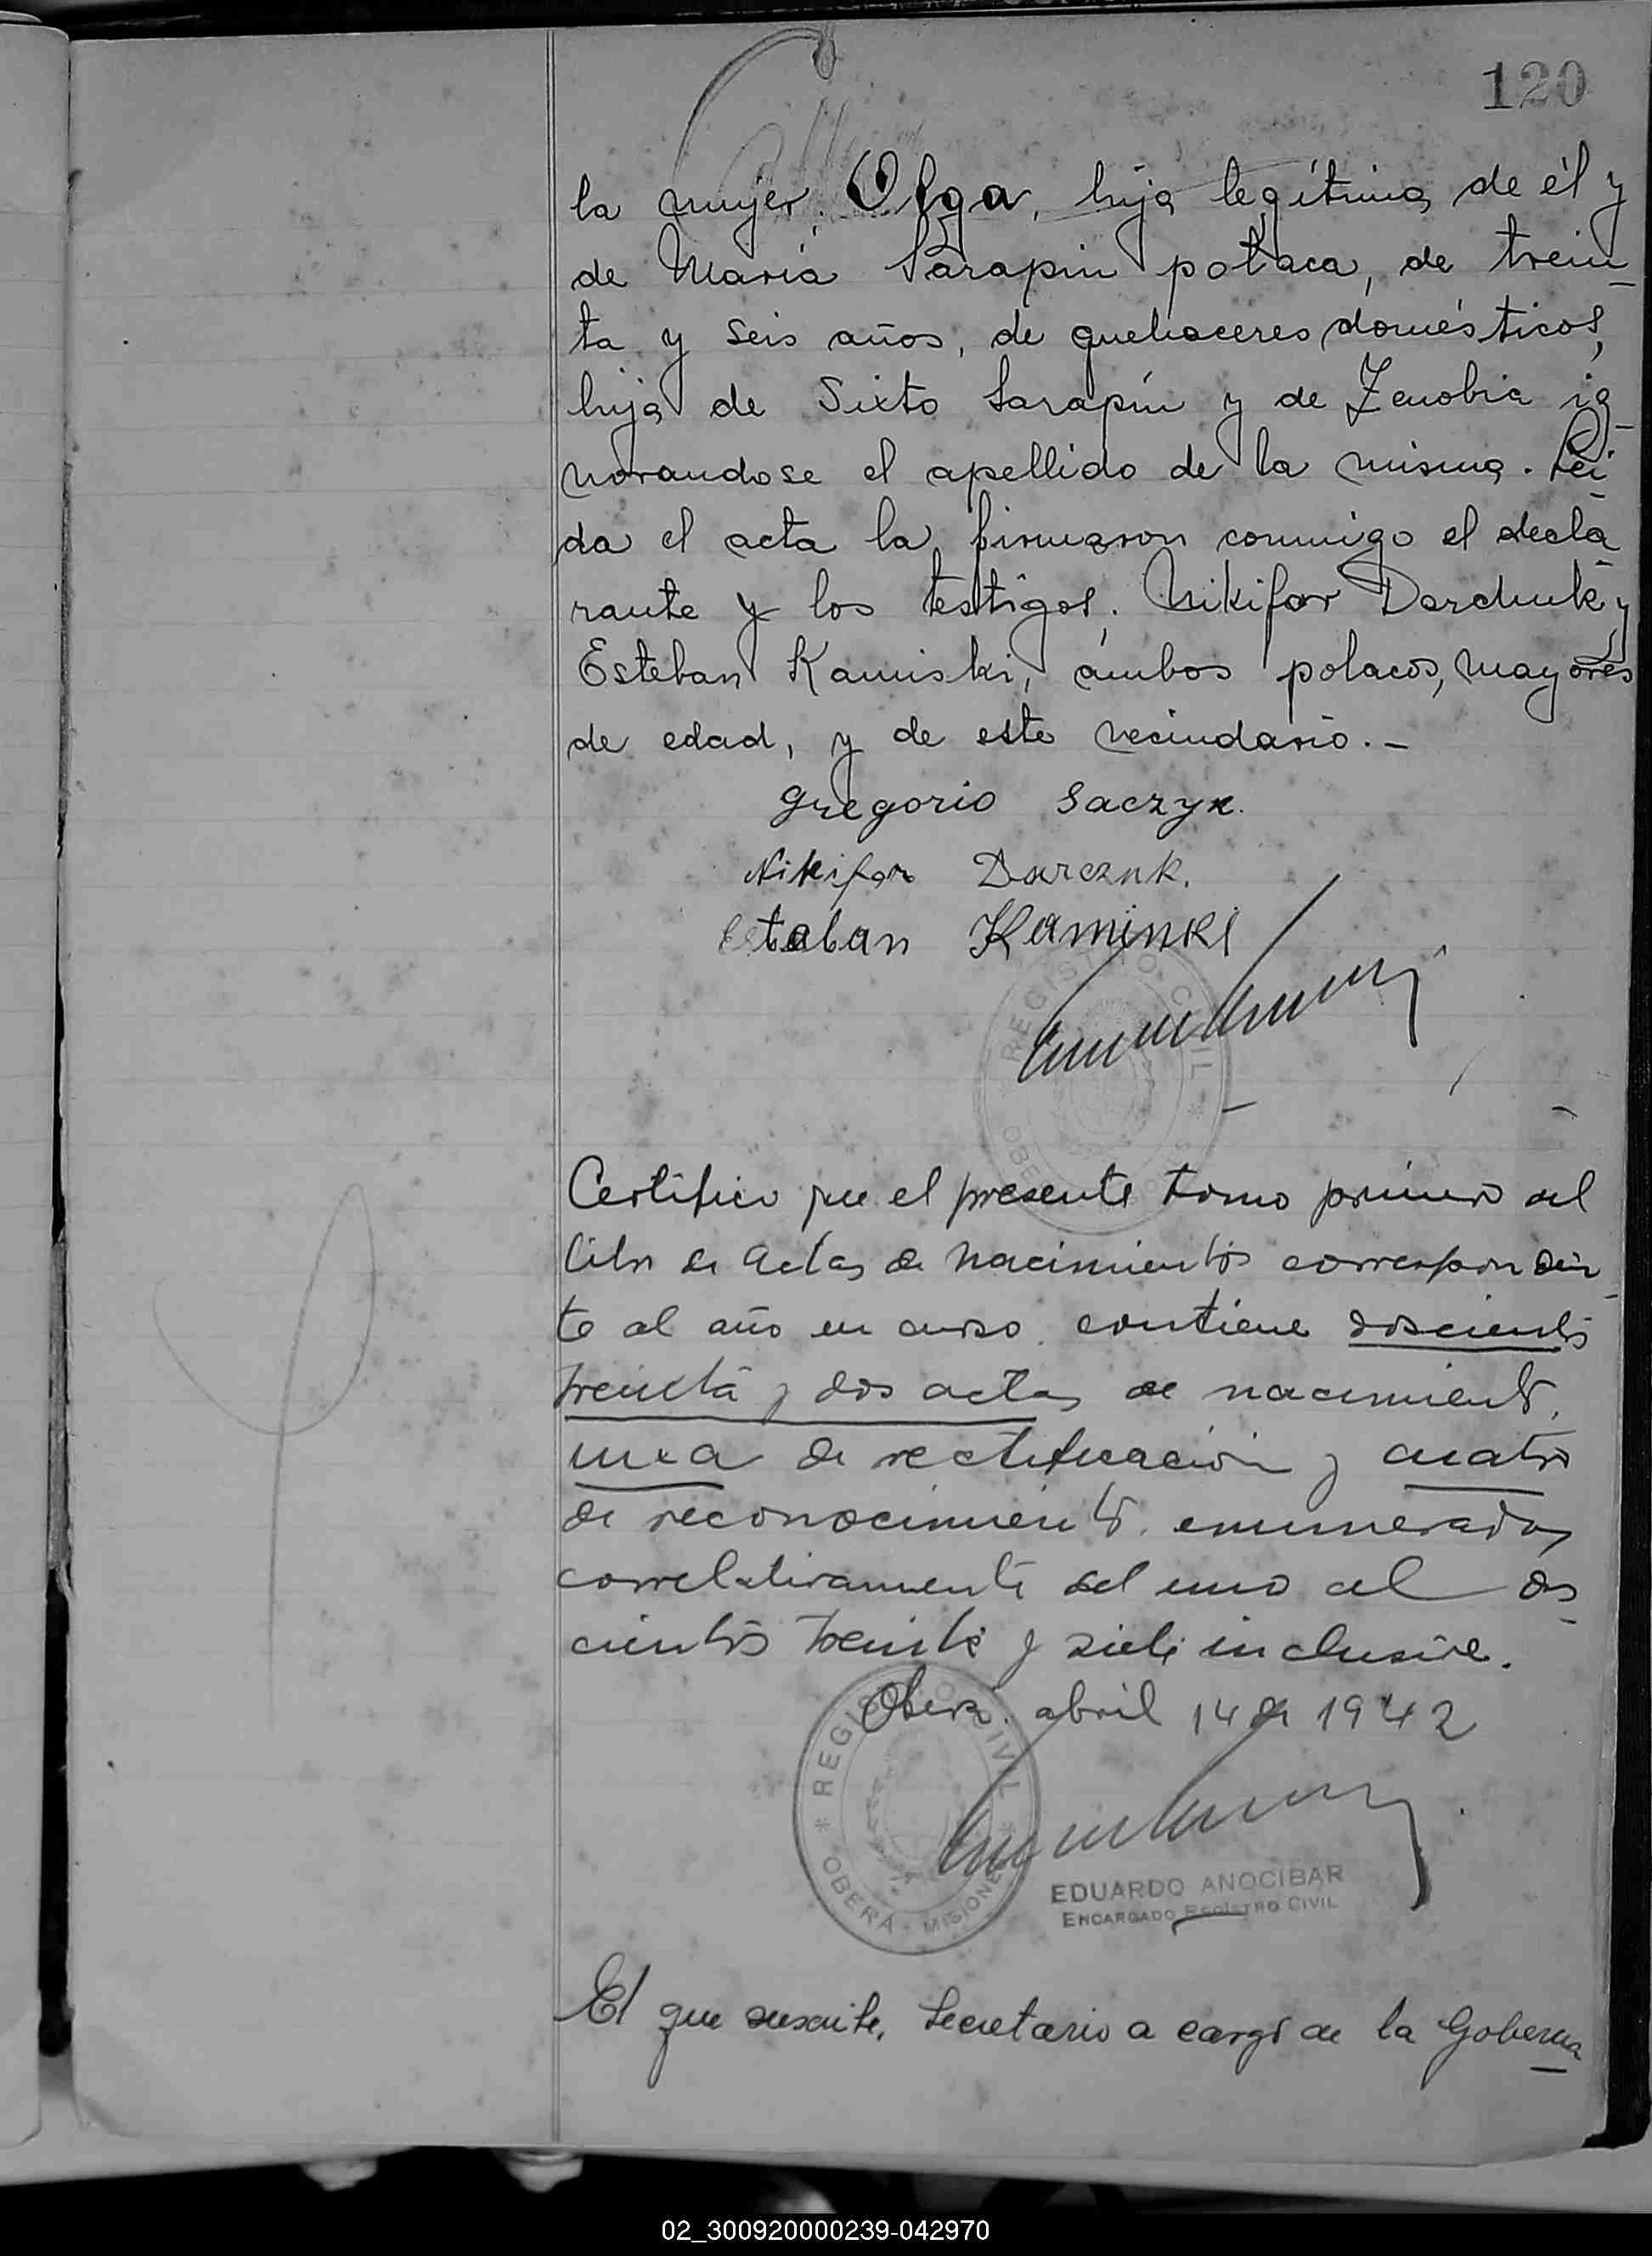 120
la mujer: Olga, hija legítima de él y
de María Sarapin polaca, de trein-
ta y seis años, de quehaceres domésticos,
hija de Sixto Sarapin y de Zenobia ig-
norandose el apellido de la misma. Lei-
da el acta la firmaron conmigo el decla-
rante y los testigos: Nikifor Darchuk y
Esteban Kaminski, ambos polacos, mayores
de edad, y de este vecindario.-
Gregorio Saczyk.
Nikifor Darczuk.
Esteban Kaminki
REGISTRO CIVIL
Certifico que el presente tomo primero del
libro de actas de nacimientos correspondien-
te al año en curso contiene doscientos
treinta y dos actas de nacimiento,
una de rectificación y cuatro
de reconocimiento, enumeradas
correlativamente del uno al dos-
cientos treinta y siete inclusive.
Oberá. abril 14 de 1942
REGISTRO CIVIL
OBERÁ - MISIONES
EDUARDO ANOCIBAR
ENCARGADO REGISTRO CIVIL
El que suscribe, Secretario a cargo de la Goberna-
02_300920000239-042970